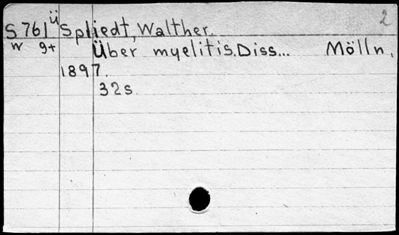 2
S761ü Spliedt, Walther.
w 9+ Über myelitis. Diss... Mölln,
1897.
32s.